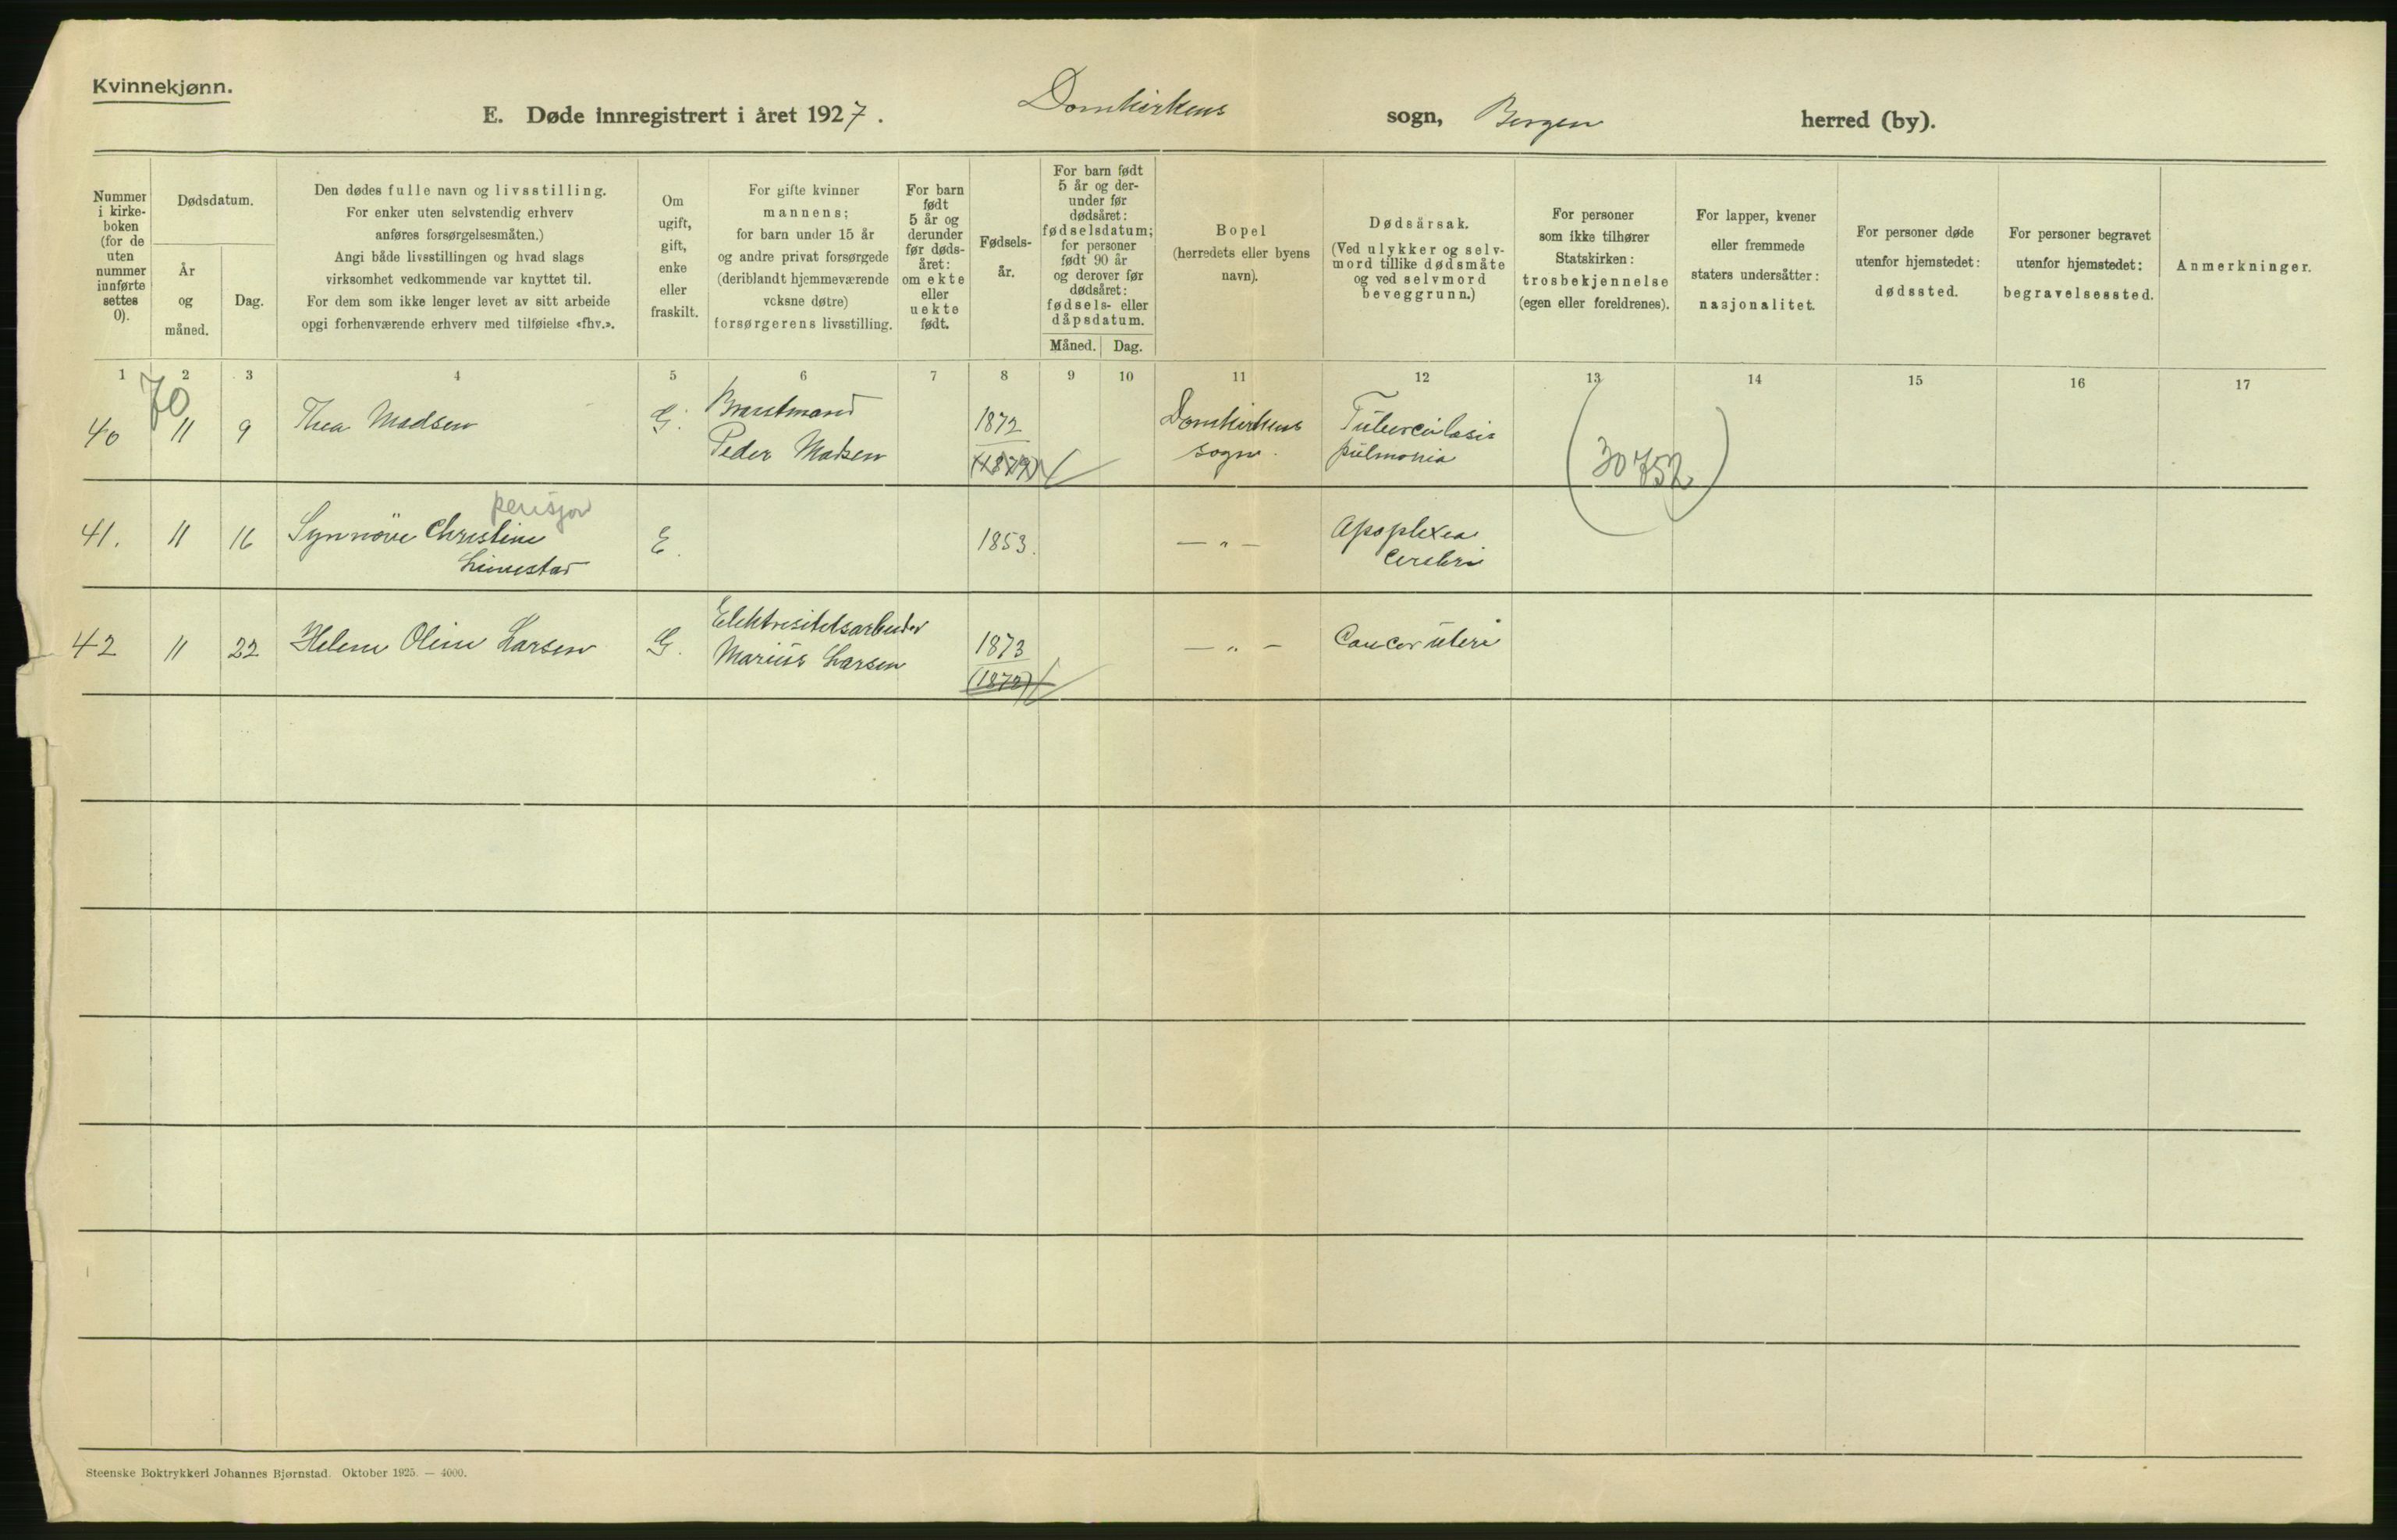 Kvinnekjønn.
E. Døde innregistrert i året 1927. Domkirkens sogn, Bergen herred (by).
Nummer
i kirke-
boken
(for de
uten
nummer
innførte
settes
0).
Dødsdatum.
År
og
måned.
Dag.
Den dødes fulle navn og livsstilling.
For enker uten selvstendig erhverv
anføres forsørgelsesmåten.)
Angi både livsstillingen og hvad slags
virksomhet vedkommende var knyttet til.
For dem som ikke lenger levet av sitt arbeide
opgi forhenværende erhverv med tilføielse «fhv.».
Om
ugift,
gift,
enke
eller
fraskilt.
For gifte kvinner
mannens;
for barn under 15 år
og andre privat forsørgede
(deriblandt hjemmeværende
voksne døtre)
forsørgerens livsstilling.
For barn
født
5 år og
derunder
før døds-
året:
om ekte
eller
uekte
født.
Fødsels-
år.
For barn født
5 år og der-
under før
dødsåret:
fødselsdatum;
for personer
født 90 år
og derover før
dødsåret:
fødsels- eller
dåpsdatum.
Måned. Dag.
Bopel
(herredets eller byens
navn).
Dødsårsak.
(Ved ulykker og selv-
mord tillike dødsmåte
og ved selvmord
beveggrunn.)
For personer
som ikke tilhører
Statskirken:
trosbekjennelse
(egen eller foreldrenes).
For lapper, kvener
eller fremmede
staters undersåtter:
nasjonalitet.
For personer døde
utenfor hjemstedet:
dødssted.
For personer begravet
utenfor hjemstedet:
begravelsessted.
Anmerkninger.
1 2 3 4 5 6 7 8 9 10 11 12 13 14 15 16 17
70
40 11 9 Thea Madsen G. Brandmand
Peder Madsen
1872
(1879)
Domkirkens
sogn.
Tuberculosis
pulmonis
(30752)
pensjon
41. 11 16 Synnöve Christine
E. 1853. — " — Apoplexia
cerebri
42 11 22 Helene Oline Larsen G. Elektrisitetsarbeider
Marius Larsen
1873
(1872)
— " — Cancer uteri
Steenske Boktrykkeri Johannes Bjørnstad. Oktober 1925. — 4000.